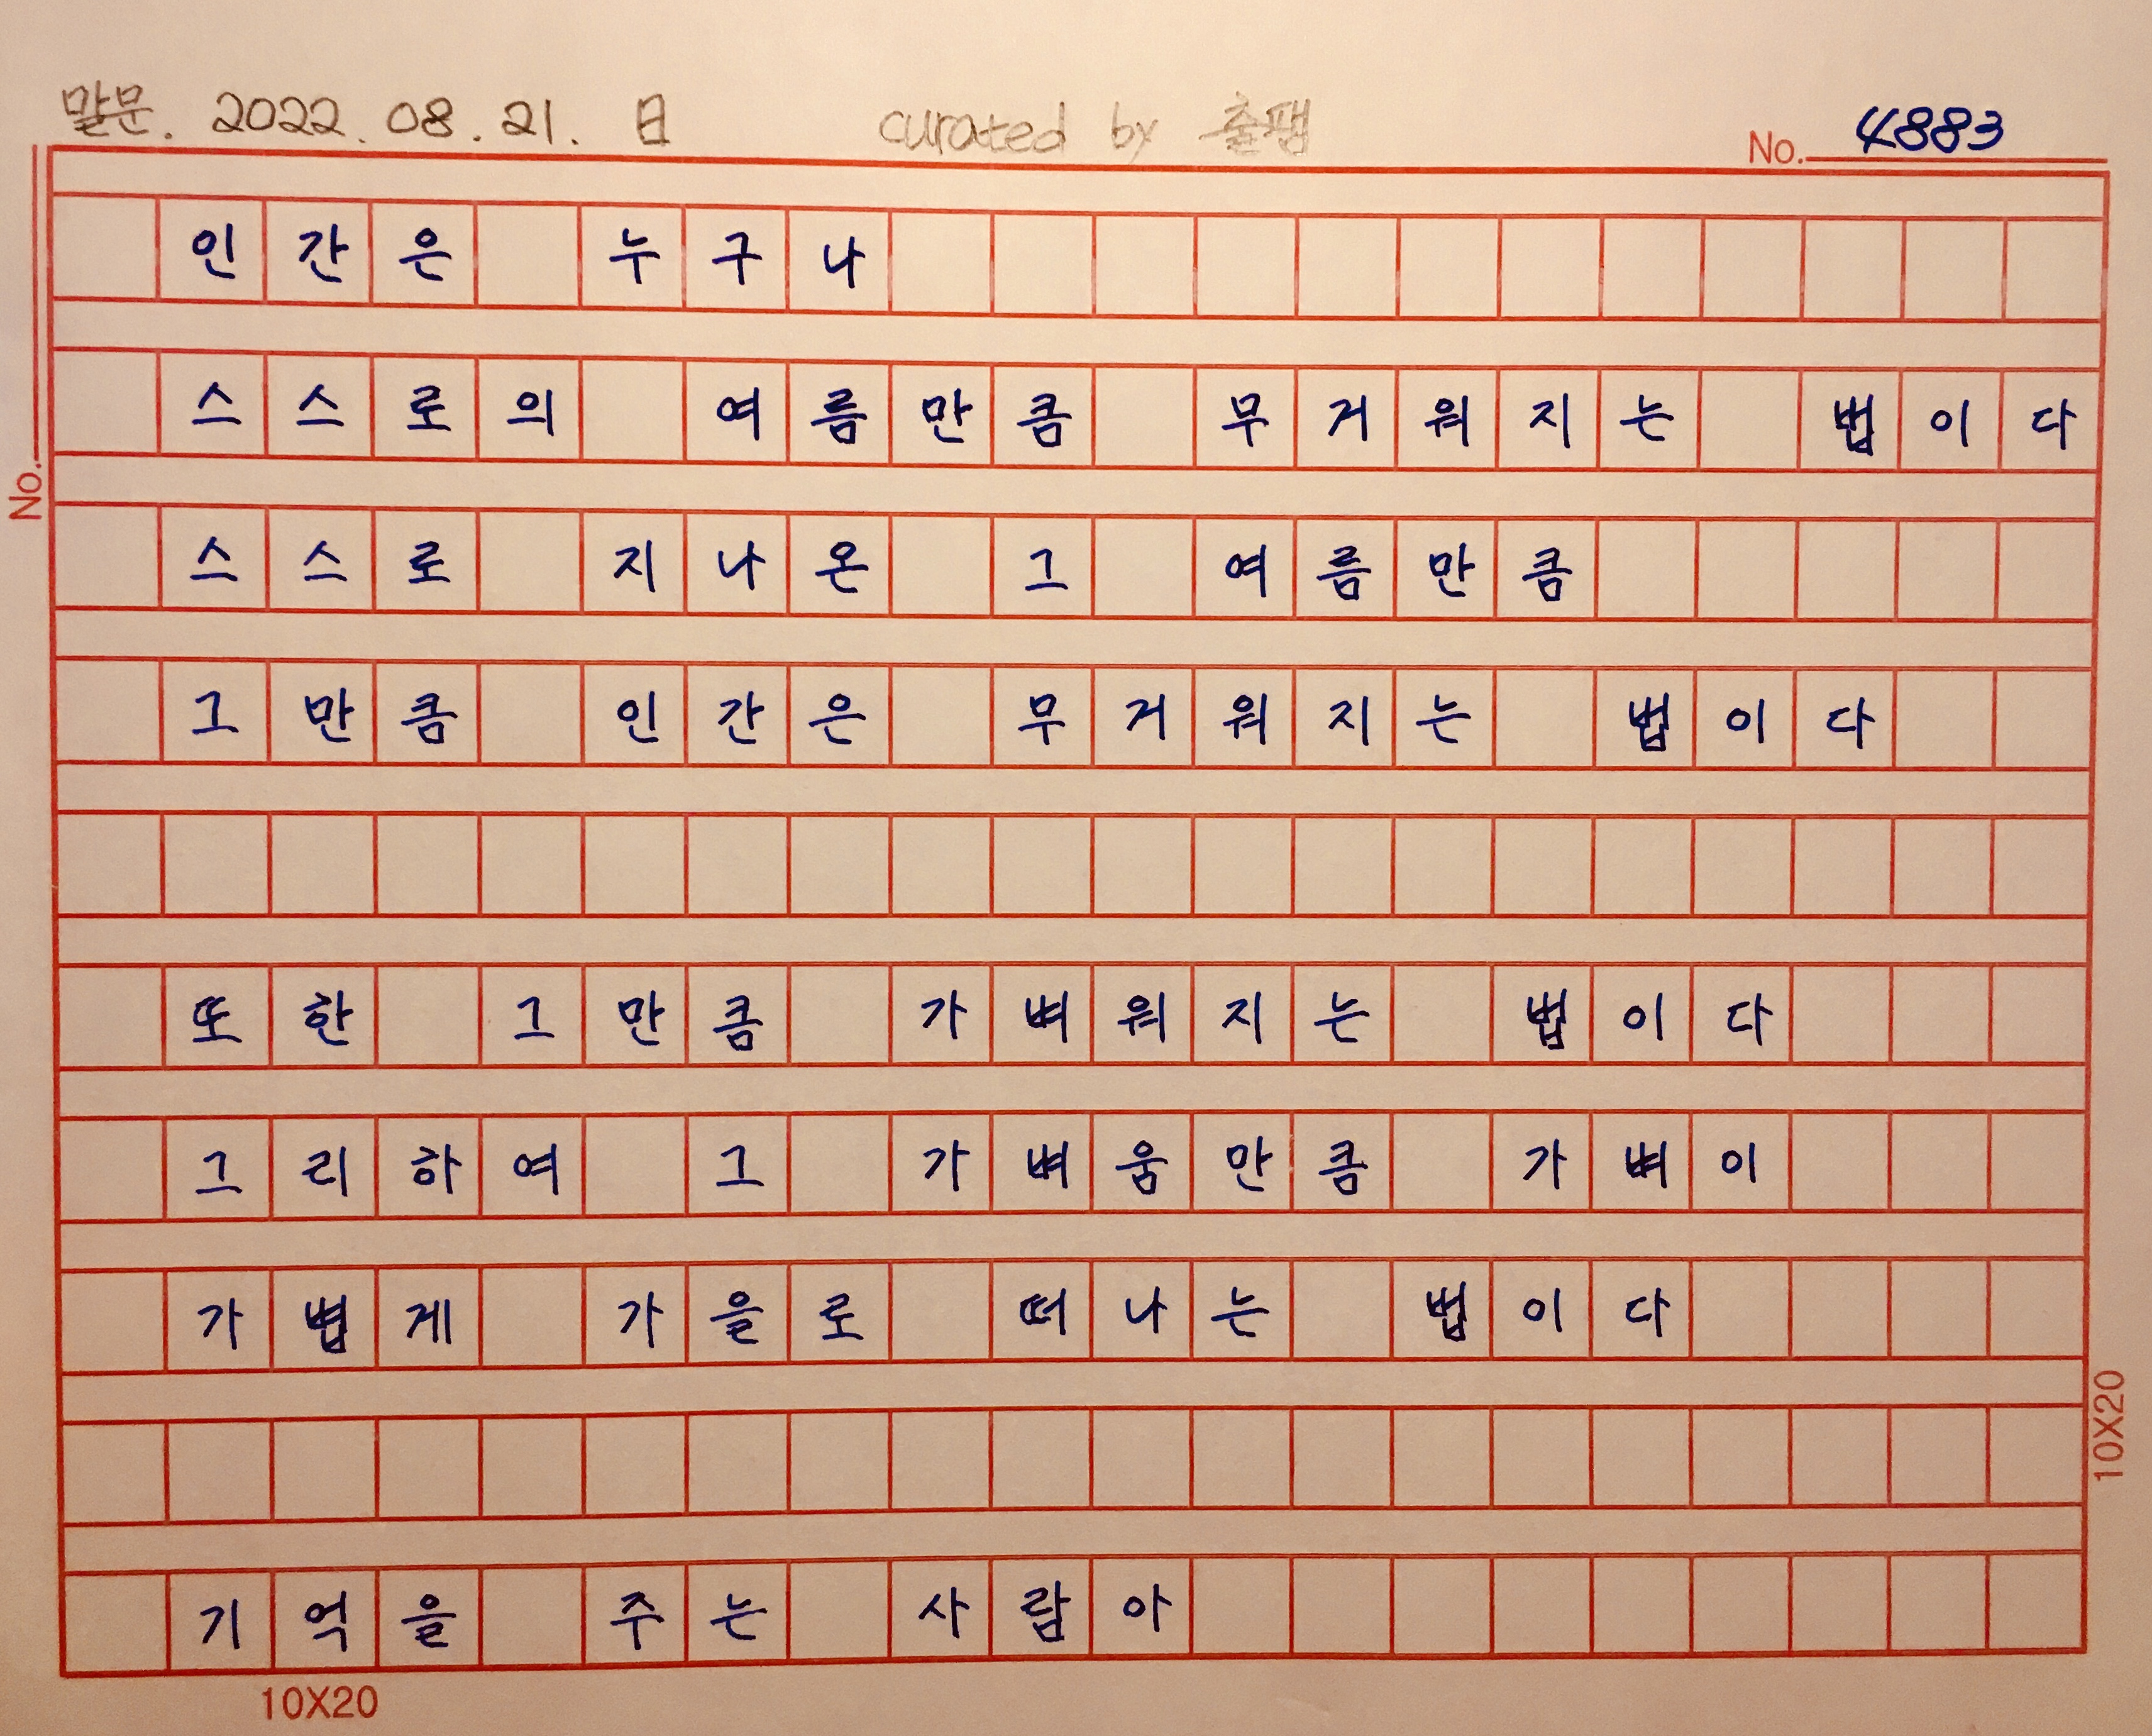 말문. 2022. 08. 21. 日 curated by 출팸
No. 4883
인간은 누구나
스스로의 여름만큼 무거워지는 법이다
스스로 지나온 그 여름만큼
그만큼 인간은 무거워지는 법이다
또한 그만큼 가벼워지는 법이다
그리하여 그 가벼움만큼 가벼이
가볍게 가을로 떠나는 법이다
기억을 주는 사람아
No.
10X20
10X20